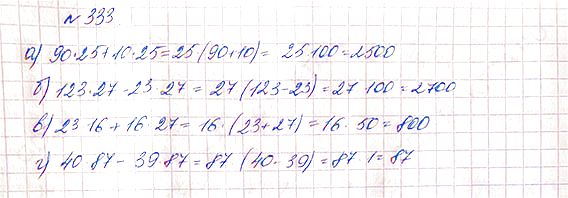 № 333
а) 90·25+10·25=25(90+10)= 25·100=2500
б) 123·27-23·27= 27(123-23)=27·100=2700
в) 23·16+16·27= 16·(23+27)=16·50=800
г) 40·87-39·87=87(40-39)=87·1=87